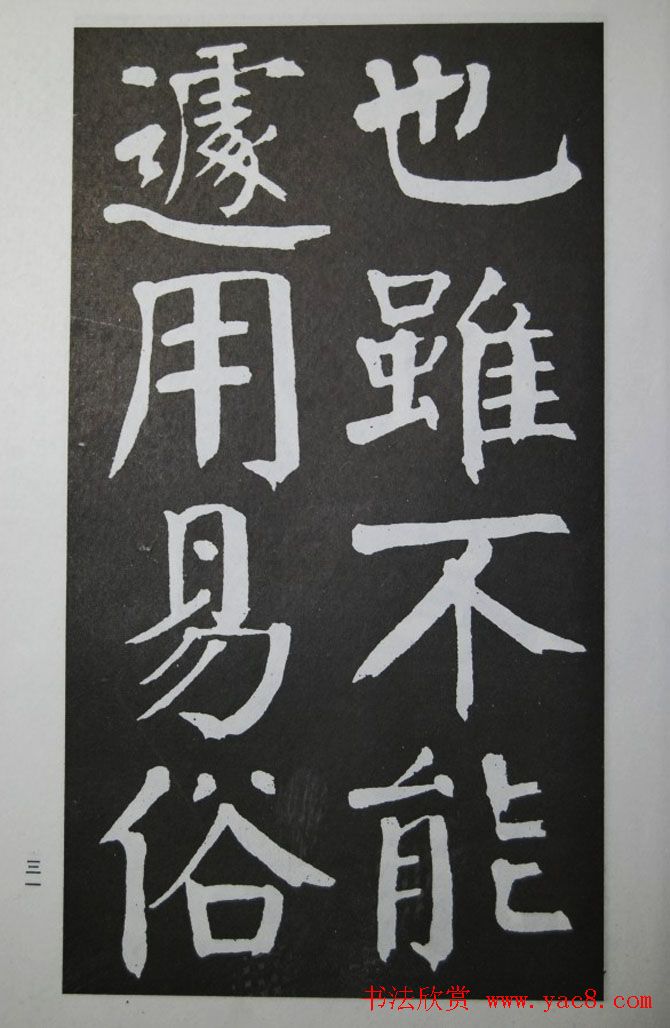 也雖不能
遽用易俗
三一
书法欣赏 www.yac8.com